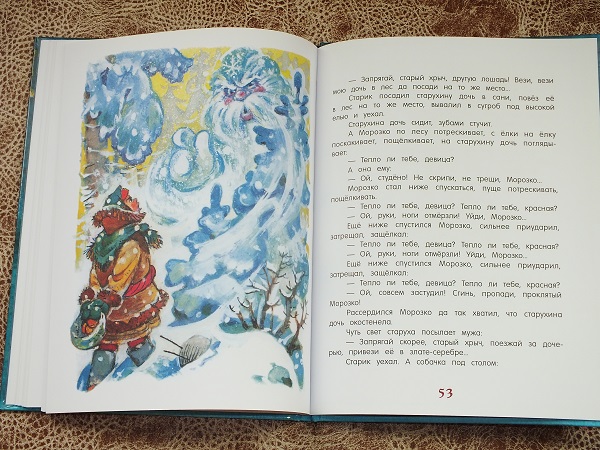 — Запрягай, старый хрыч, другую лошадь! Вези, вези
мою дочь в лес да посади на то же место...
Старик посадил старухину дочь в сани, повёз её
в лес на то же место, вывалил в сугроб под высокой
елью и уехал.
Старухина дочь сидит, зубами стучит.
А Морозко по лесу потрескивает, с ёлки на ёлку
поскакивает, пощёлкивает, на старухину дочь погляды-
вает:
— Тепло ли тебе, девица?
А она ему:
— Ой, студёно! Не скрипи, не трещи, Морозко...
Морозко стал ниже спускаться, пуще потрескивать,
пощёлкивать:
— Тепло ли тебе, девица? Тепло ли тебе, красная?
— Ой, руки, ноги отмёрзли! Уйди, Морозко...
Ещё ниже спустился Морозко, сильнее приударил,
затрещал, защёлкал:
— Тепло ли тебе, девица? Тепло ли тебе, красная?
— Ой, руки, ноги отмёрзли! Уйди, Морозко...
Ещё ниже спустился Морозко, сильнее приударил,
затрещал, защёлкал:
— Тепло ли тебе, девица? Тепло ли тебе, красная?
— Ой, совсем застудил! Сгинь, пропади, проклятый
Морозко!
Рассердился Морозко да так хватил, что старухина
дочь окостенела.
Чуть свет старуха посылает мужа:
— Запрягай скорее, старый хрыч, поезжай за доче-
рью, привези её в злате-серебре...
Старик уехал. А собачка под столом:
53